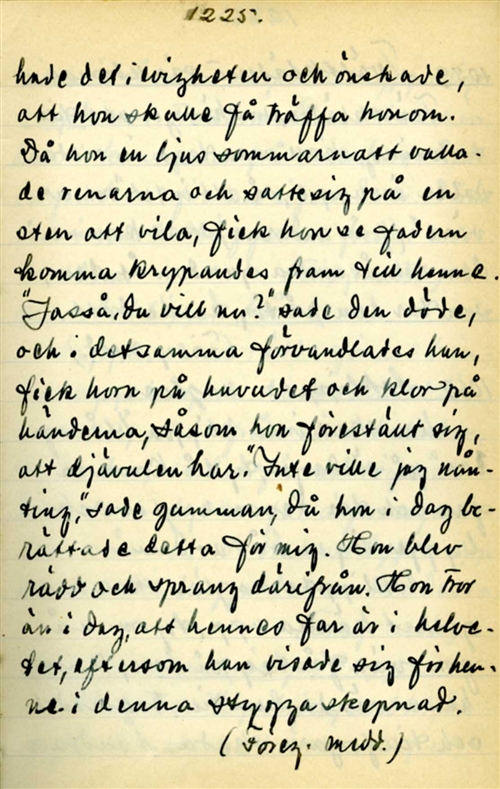 1225.
hade det i evigheten och önskade,
att hon skulle få träffa honom.
Då hon en ljus sommarnatt valla-
de renarna och satte sig på en
sten att vila, fick hon se fadern
komma krypandes fram till henne.
"Jasså, du vill nu?" sade den döde,
och i detsamma förvandlades han,
fick horn på huvudet och klor på
händerna, såsom hon föreställt sig,
att djävulen har. "Inte ville jag nån-
ting," sade gumman, då hon i dag be-
rättade detta för mig. Hon blev
rädd och sprang därifrån. Hon tror
än i dag, att hennes far är i helve-
tet, eftersom han visade sig för hen-
ne i denna stygga skepnad.
(Föreg. medd.)